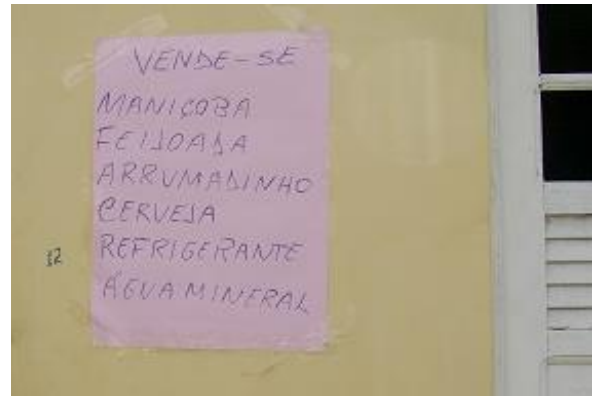 VENDE-SE
MANIÇOBA
FEIJOADA
ARRUMADINHO
CERVEJA
REFRIGERANTE
ÁGUA MINERAL